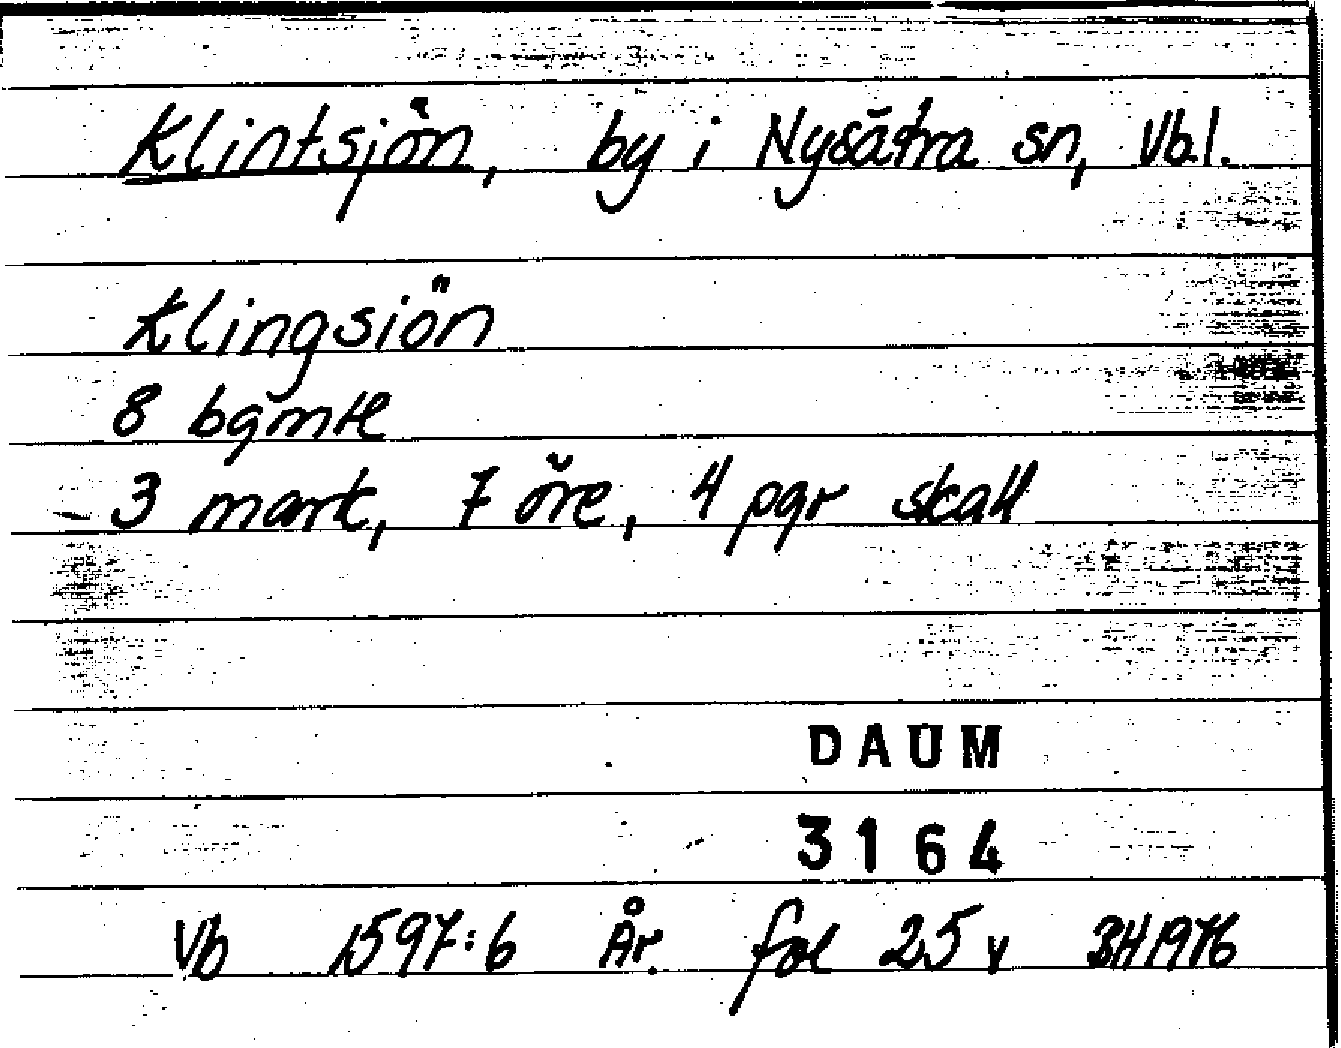 Klintsjön, by i Nysätra sn, Vb.l.
Klingsiön
8 bgmtl
3 mark, 7 öre, 4 pgr skatt
DAUM
3164
Vb 1597:6 År. fol 25 v BH 1976